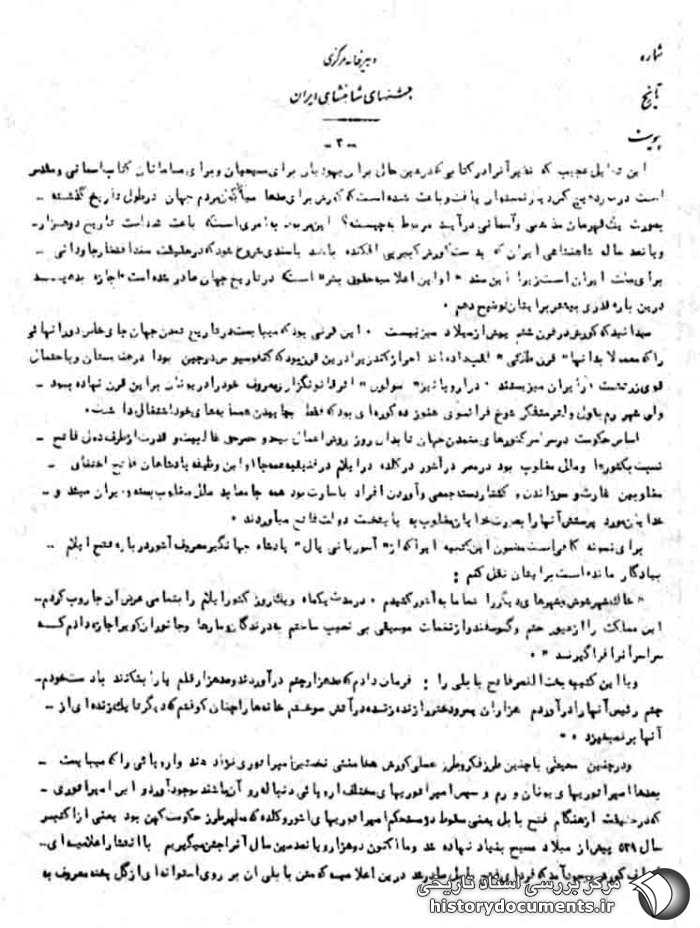 شماره
دبیرخانه مرکزی
تاریخ
جشنهای شاهنشاهی ایران
پیوست
- ۲ -
این تجلیل عجیب که نظیر آنرا در کتابی که در عین حال برای یهودیان برای مسیحیان و برای مسلمانان کتاب آسمانی و مقدس
است در مورد هیچ کس دیگر نمیتوان یافت باعث شده است که کورش برای صدها میلیون مردم جهان در طول تاریخ گذشته -
بصورت یک قهرمان مذهبی و آسمانی درآید مربوط به چیست؟ این مربوط به امری است که باعث شده است تاریخ دو هزار -
و پانصد ساله شاهنشاهی ایران که بدست کورش کبیر پی افکنده باسندی شروع شود که در حقیقت سند افتخار جاودانی -
برای ملت ایران است زیرا این سند " اولین اعلامیه حقوق بشر " است که در تاریخ جهان صادر شده است اجازه بدهید
درین باره قدری بیشتر برایتان توضیح دهم .
میدانید که کورش در قرن ششم پیش از میلاد میزیست . این قرنی بود که میبایست در تاریخ تمدن جهان جای خاص
را که معمولا بدانها " قرن طلائی " لقب داده اند احراز کند زیرا در این قرن بود که کنفوسیوس در چین بودا در هندوستان و باحتمال
قوی زرتشت در ایران میزیستند . در اروپا نیز " سولون " قانونگزار معروف خود را در یونان برا این قرن نهاده بود -
ولی شهر رم بقول متفکر شوخ فرانسوی هنوز دهکوره ای بود که فقط بچاپیدن همسایه های خود اشتغال داشت .
اساس حکومت در سراسر کشورهای متمدن جهان تا بدان روز روش اعمال قدرت از طرف دول فاتح -
نسبت بکشورها و ملل مغلوب بود در مصر در آشور در کلده در ایلام در فنیقیه همه جا اولین وظیفه پادشاهان فاتح
مغلوبین غارت و سوزاندن و کشتار دسته جمعی و آوردن افراد باسارت بود همه جا معابد ملل مغلوب بسته و ویران میشد و -
خدایان مورد پرستش آنها را بصورت خدایان مغلوب به پایتخت دولت فاتح میآوردند .
برای نمونه کافی است مضمون این کتیبه را که از " آسوربانی پال " پادشاه جهانگیر معروف آشور درباره فتح ایلام -
بیادگار مانده است برایتان نقل کنم :
" خاک شهر شوش شهرهای دیگر را تماما به آشور کشیدم . در مدت یکماه و یکروز کشور ایلام را بتمامی عرض آن جاروب کردم -
این مملکت را از عبور حشم و گوسفند و از نغمات موسیقی بی نصیب ساختم به درندگان و مارها و جانوران کویر اجازه دادم که
سراسر آنرا فرا گیرند " .
و یا این کتیبه بخت النصر فاتح بابلی را : فرمان دادم که صد هزار چشم درآوردند و صد هزار قلم پا را بشکنند با دست خودم -
چشم رئیس آنها را درآوردم هزاران پسر و دختر را زنده زنده در آتش سوختم خانه ها را چنان کوفتم که دیگر بانگ زنده ای از -
آنها برنمیخیزد " .
و در چنین محیطی با چنین طرز فکر و طرز عملی کورش هخامنشی نخستین امپراطوری نژاد هند و اروپائی را که میبایست -
بعدها امپراطوریهای یونان و رم و سپس امپراطوریهای مختلف اروپائی دنباله رو آن باشند بوجود آورد و این امپراطوری -
که در حقیقت از هنگام فتح بابل یعنی سقوط دو امپراطوریهای آشور و کلده که مظهر طرز حکومت کهن بود یعنی از اکتبر
سال ۵۳۹ پیش از میلاد مسیح بنیاد نهاده شد و ما اکنون دو هزار و پانصدمین سال آنرا جشن میگیریم با انتشار اعلامیه ای -
درین اعلامیه که متن بابلی آن بر روی استوانه ای از گل پخته معروف به
مرکز بررسی اسناد تاریخی
historydocuments.ir